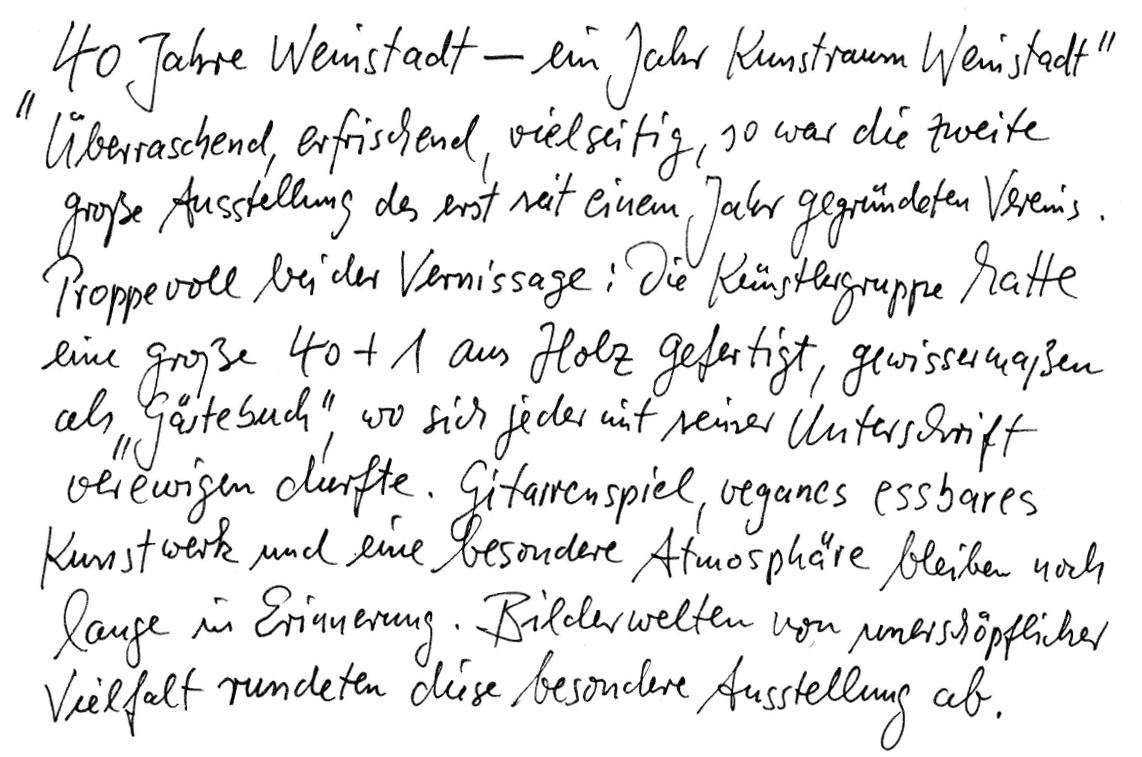 40 Jahre Weinstadt – ein Jahr Kunstraum Weinstadt"
"Überraschend, erfrischend, vielseitig, so war die zweite
große Ausstellung des erst seit einem Jahr gegründeten Vereins.
Proppevoll bei der Vernissage: Die Künstlergruppe hatte
eine große 40+1 aus Holz gefertigt, gewissermaßen
als „Gästebuch", wo sich jeder mit seiner Unterschrift
verewigen durfte. Gitarrenspiel, veganes essbares
Kunstwerk und eine besondere Atmosphäre bleiben noch
lange in Erinnerung. Bilderwelten von unerschöpflicher
Vielfalt rundeten diese besondere Ausstellung ab.